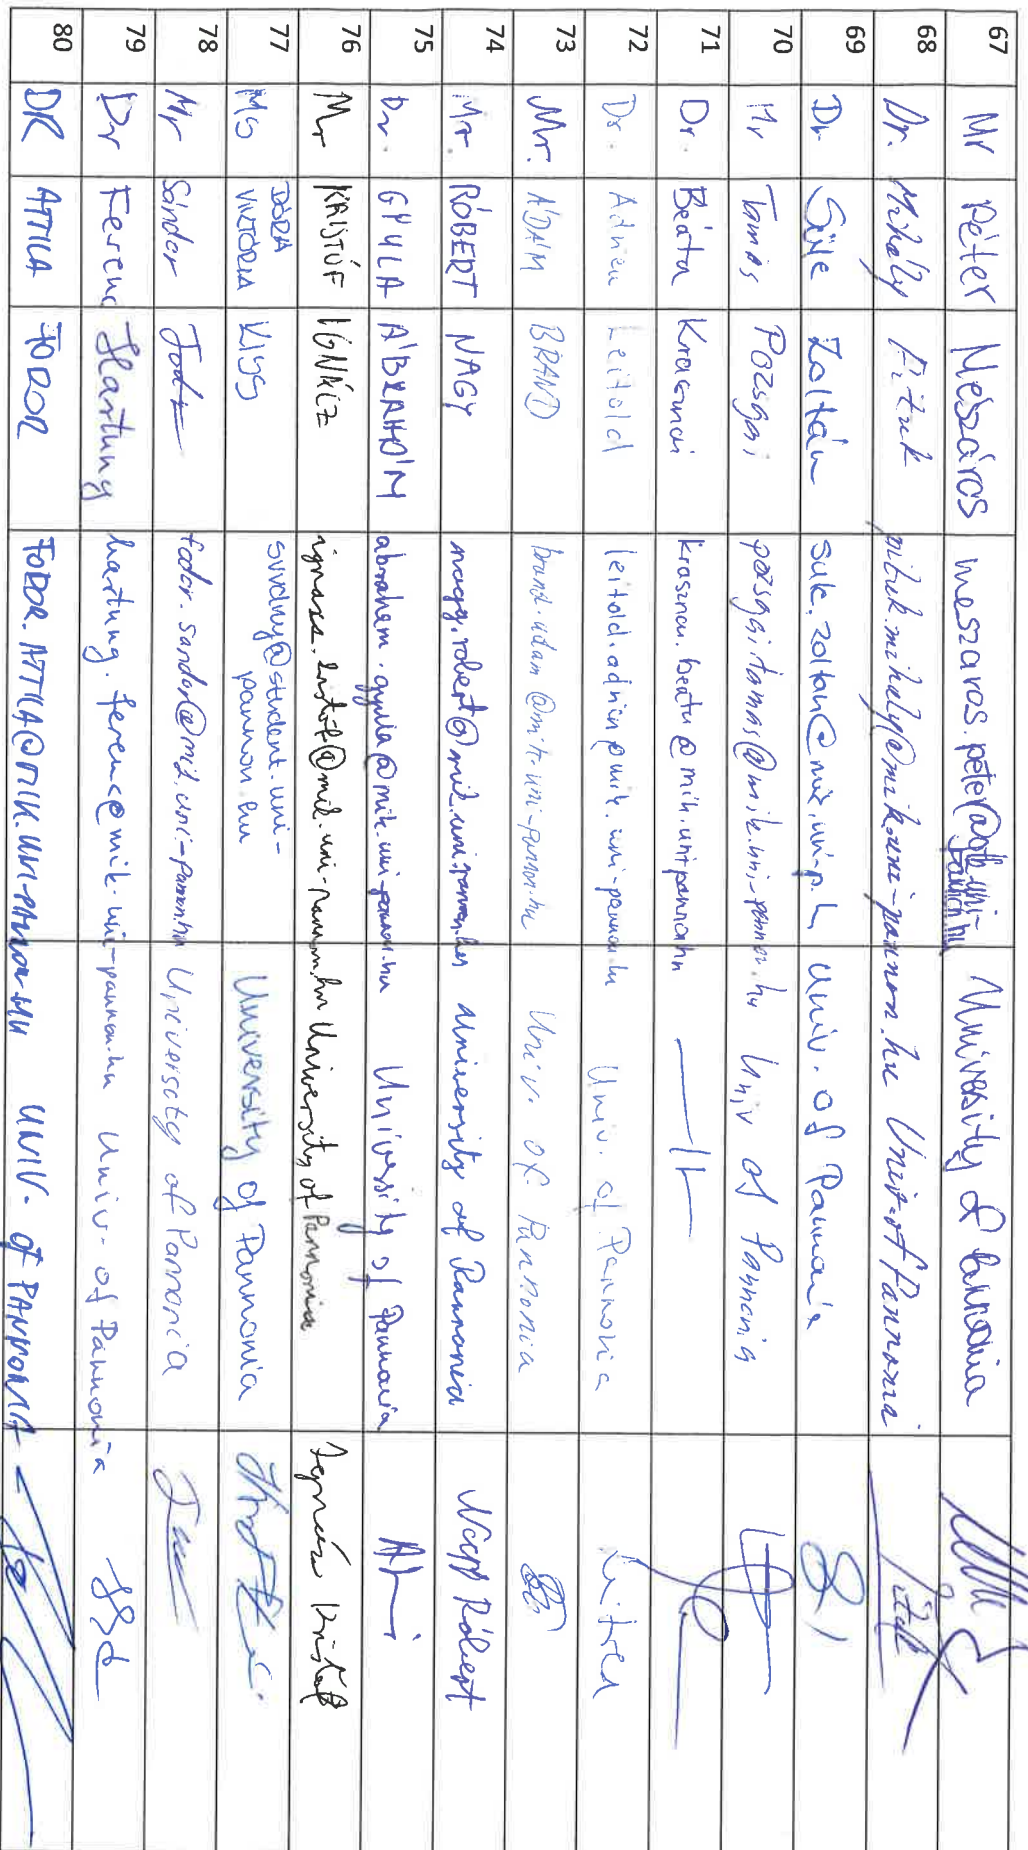 67 Mr Péter Mészáros meszaros.peter@ University of Pannonia
68 Dr. Mihály Pituk pituk.mihaly@mik.uni-pannon.hu Univ. of Pannonia Pituk
69 Dr Süle Zoltán sule.zoltan@mik.uni-p.h Univ. of Pannonia
70 Mr Tamás Pozsgai pozsgai.tamas@mik.uni-pannon.hu Univ of Pannonia
71 Dr. Beáta Krasznai krasznai.beata@mik.uni-pannon.hu —||—
72 Dr. Adrien Leitold leitold.adrien@mik.uni-pannon.hu Univ. of Pannonia
73 Mr. ÁDÁM BRAND brand.adam@mik.uni-pannon.hu Univ. of Pannonia
74 Mr. RÓBERT NAGY nagy.robert@mik.uni-pannon.hu University of Pannonia Nagy Róbert
75 Dr. GYULA ÁBRAHÁM abraham.gyula@mik.uni-pannon.hu University of Pannonia
76 Mr KRISTÓF IGNÁCZ ignacz.kristof@mik.uni-pannon.hu University of Pannonia Ignácz Kristóf
77 Ms DÓRA VIKTÓRIA KISS @student.uni-
pannon.hu University of Pannonia
78 Mr Sándor Fodor fodor.sandor@mik.uni-pannon.hu University of Pannonia
79 Dr Ferenc Hartung hartung.ferenc@mik.uni-pannon.hu Univ. of Pannonia
80 DR ATTILA FODOR FODOR.ATTILA@MIK.UNI-PANNON.HU UNIV. of PANNONIA